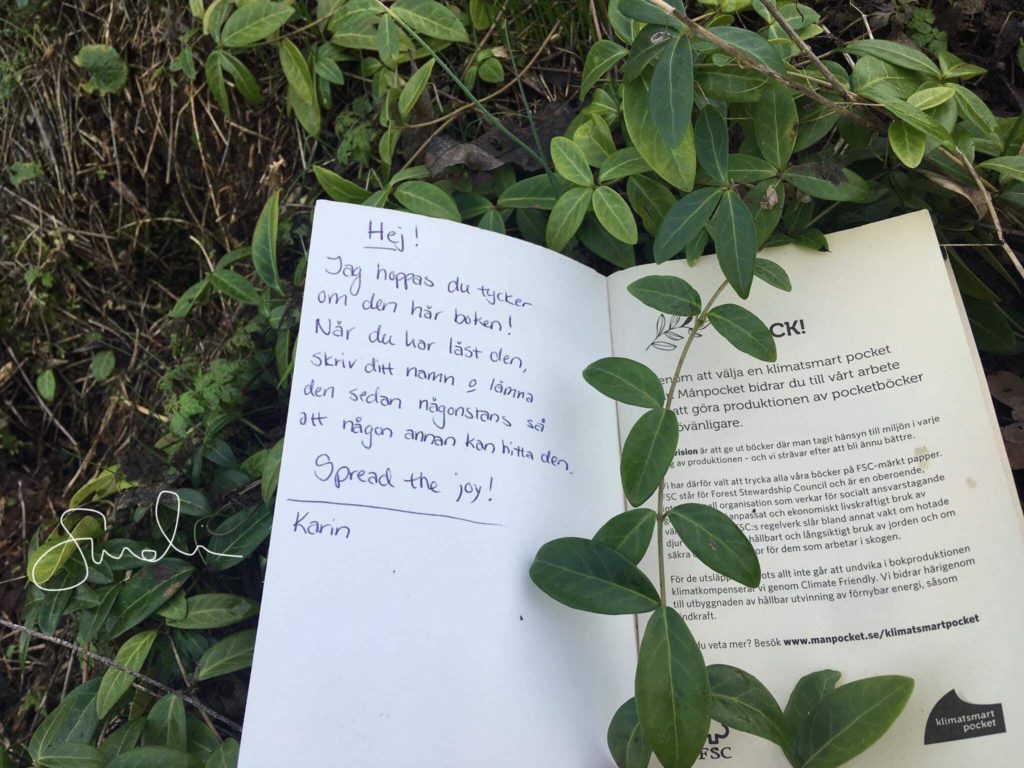 Hej!
Jag hoppas du tycker
om den här boken!
När du har läst den,
skriv ditt namn o lämna
den sedan någonstans så
att någon annan kan hitta den.
Spread the joy!
Karin
CK!
om att välja en klimatsmart pocket
Månpocket bidrar du till vårt arbete
att göra produktionen av pocketböcker
övänligare.
vision är att ge ut böcker där man tagit hänsyn till miljön i varje
g av produktionen – och vi strävar efter att bli ännu bättre.
Vi har därför valt att trycka alla våra böcker på FSC-märkt papper.
FSC står för Forest Stewardship Council och är en oberoende,
ell organisation som verkar för socialt ansvarstagande
anpassat och ekonomiskt livskraftigt bruk av
FSC:s regelverk slår bland annat vakt om hotade
djur hållbart och långsiktigt bruk av jorden och om
säkra or för dem som arbetar i skogen.
För de utsläpp ots allt inte går att undvika i bokproduktionen
klimatkompenserar vi genom Climate Friendly. Vi bidrar härigenom
till utbyggnaden av hållbar utvinning av förnybar energi, såsom
indkraft.
du veta mer? Besök www.manpocket.se/klimatsmartpocket
klimatsmart
pocket
FSC